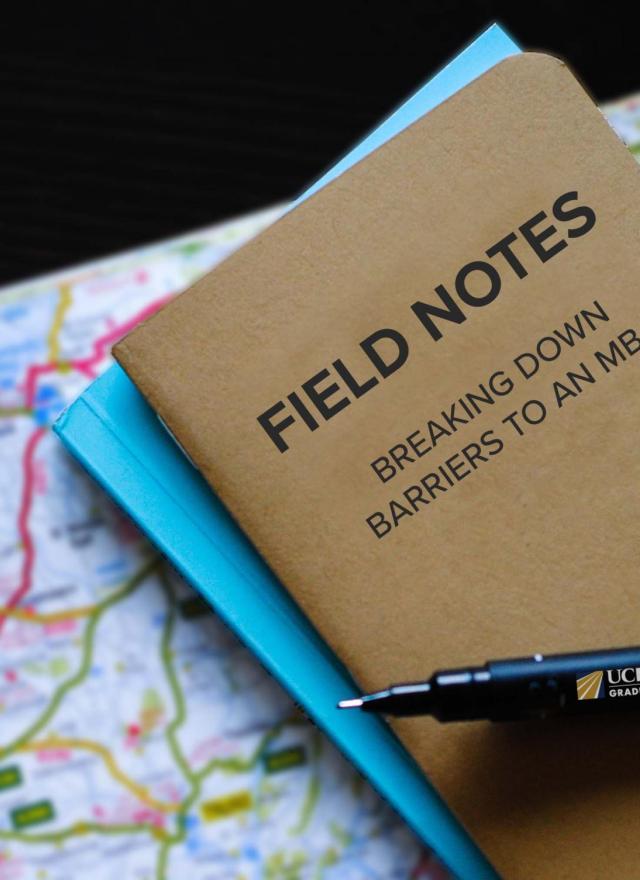 FIELD NOTES
BREAKING DOWN
BARRIERS TO AN MB
UCI
GRAD